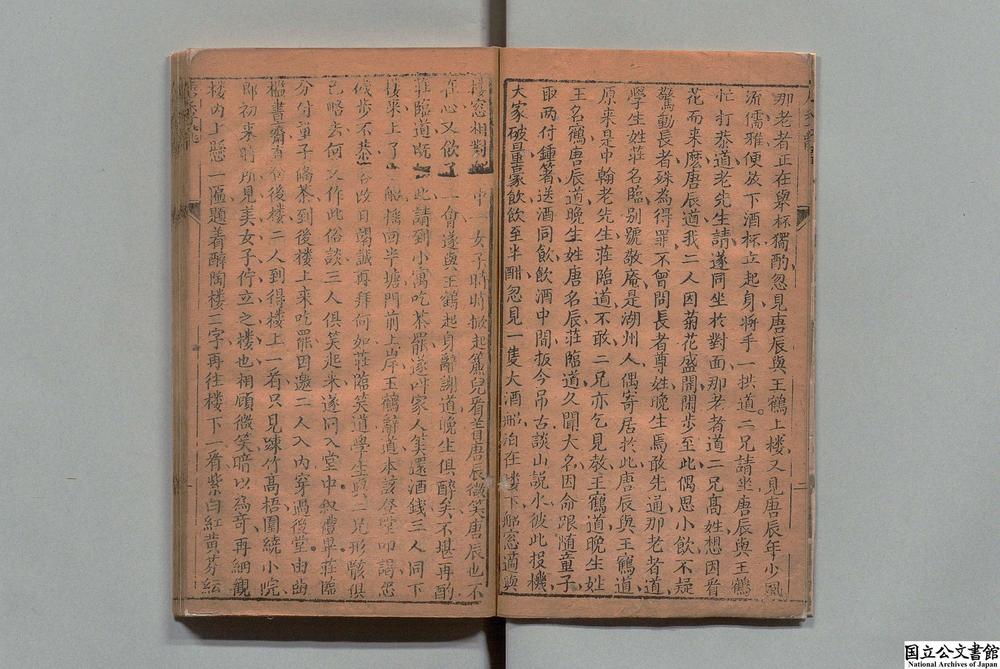 那老者正在舉杯獨酌忽見唐辰與王鶴上楼又見唐辰年少風
流儒雅便放下酒杯立起身將手一拱道二兄請坐唐辰與王鶴
忙打恭道老先生請遂同坐於對面那老者道二兄高姓想因看
花而来麽唐辰道我二人因菊花盛開閒步至此偶思小飲不疑
驚動長者殊為得罪不曾問長者尊姓晚生焉敢先通那老者道
學生姓莊名臨别號敬庵是湖州人偶寄居於此唐辰與王鶴道
原来是中翰老先生莊臨道不敢二兄亦乞見教王鶴道晚生姓
王名鶴唐辰道晚生姓唐名辰莊臨道久聞大名因命跟随童子
取两付鍾箸送酒同飲飲酒中間扳今吊古談山説水彼此投機
大家破量豪飲飲至半酣忽見一隻大酒船泊在楼下船窓滿與
楼窓相對 中一女子時時掀起簾兒看着唐辰微笑唐辰也不
在心又飲了一會遂與王鶴起身辭謝道晚生俱醉矣不堪再酌
莊臨道既 此請到小寓吃茶罷遂呼家人筭還酒錢三人同下
楼来上了 船摇回半塘門前上岸王鶴辭道本該登堂叩謁恐
俄步不恭容改日竭誠再拜何如莊臨笑道學生與二兄形骸俱
已略去何又作此俗談三人俱笑起来遂同入堂中叙禮畢莊臨
分付童子備茶到後楼上来吃罷因邀二人入内穿過後堂由曲
檻書齋 後楼二人到得楼上一看只見踈竹高梧圍繞小院
即初来時所見美女子佇立之楼也相顧微笑暗以為奇再細觀
楼内上懸一匾題着醉陶楼三字再往楼下一看紫白紅黄芬紜
二
国立公文書館
National Archives of Japan